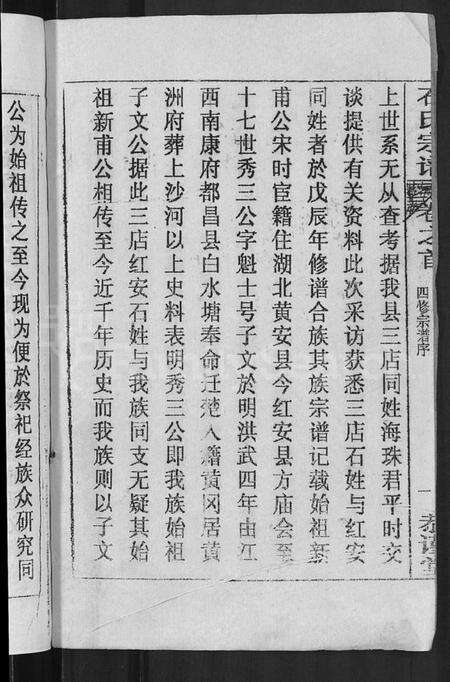 石氏宗谱 卷之首 四修宗谱序 一
上世系无从查考据我县三店同姓海珠君平时交
谈提供有关资料此次采访获悉三店石姓与红安
同姓者於戊辰年修谱合族其族宗谱记载始祖新
甫公宋时宦籍住湖北黄安县今红安县方庙会至
十七世秀三公字魁士号子文於明洪武四年由江
西南康府都昌县白水塘奉命迁楚入籍黄冈居黄
洲府葬上沙河以上史料表明秀三公即我族始祖
子文公据此三店红安石姓与我族同支无疑其始
祖新甫公相传至今近千年历史而我族则以子文
公为始祖传之至今现为便於祭祀经族众研究同